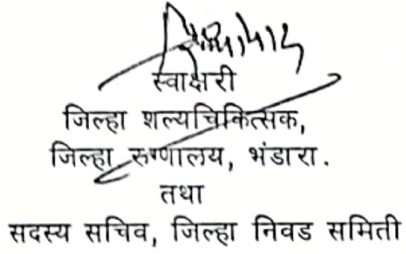 स्वाक्षरी
जिल्हा शल्यचिकित्सक,
जिल्हा रुग्णालय, भंडारा.
तथा
सदस्य सचिव, जिल्हा निवड समिती